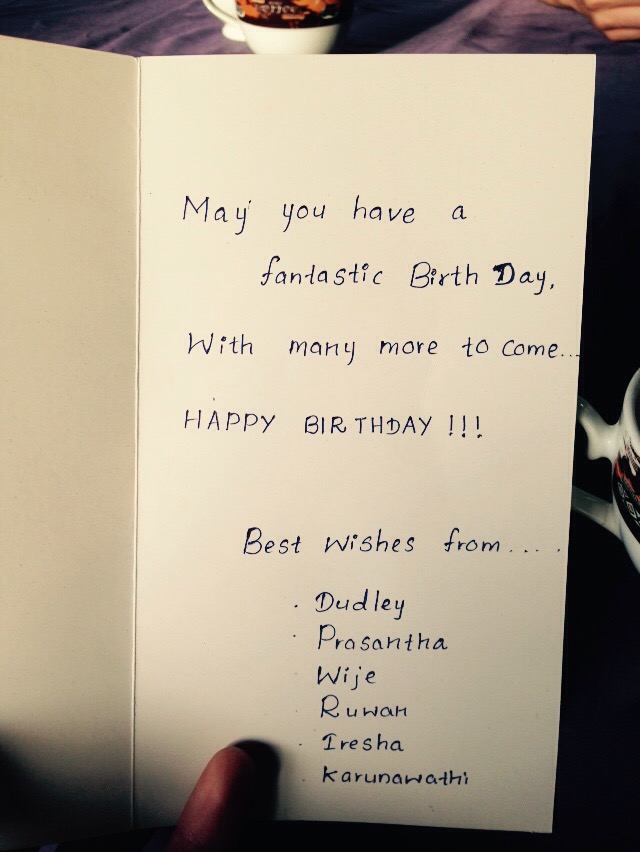 May you have a
fantastic Birth Day,
With many more to come...
HAPPY BIRTHDAY !!!
Best wishes from.....
· Dudley
· Prasantha
· Wije
· Ruwan
· Iresha
· Karunawathi